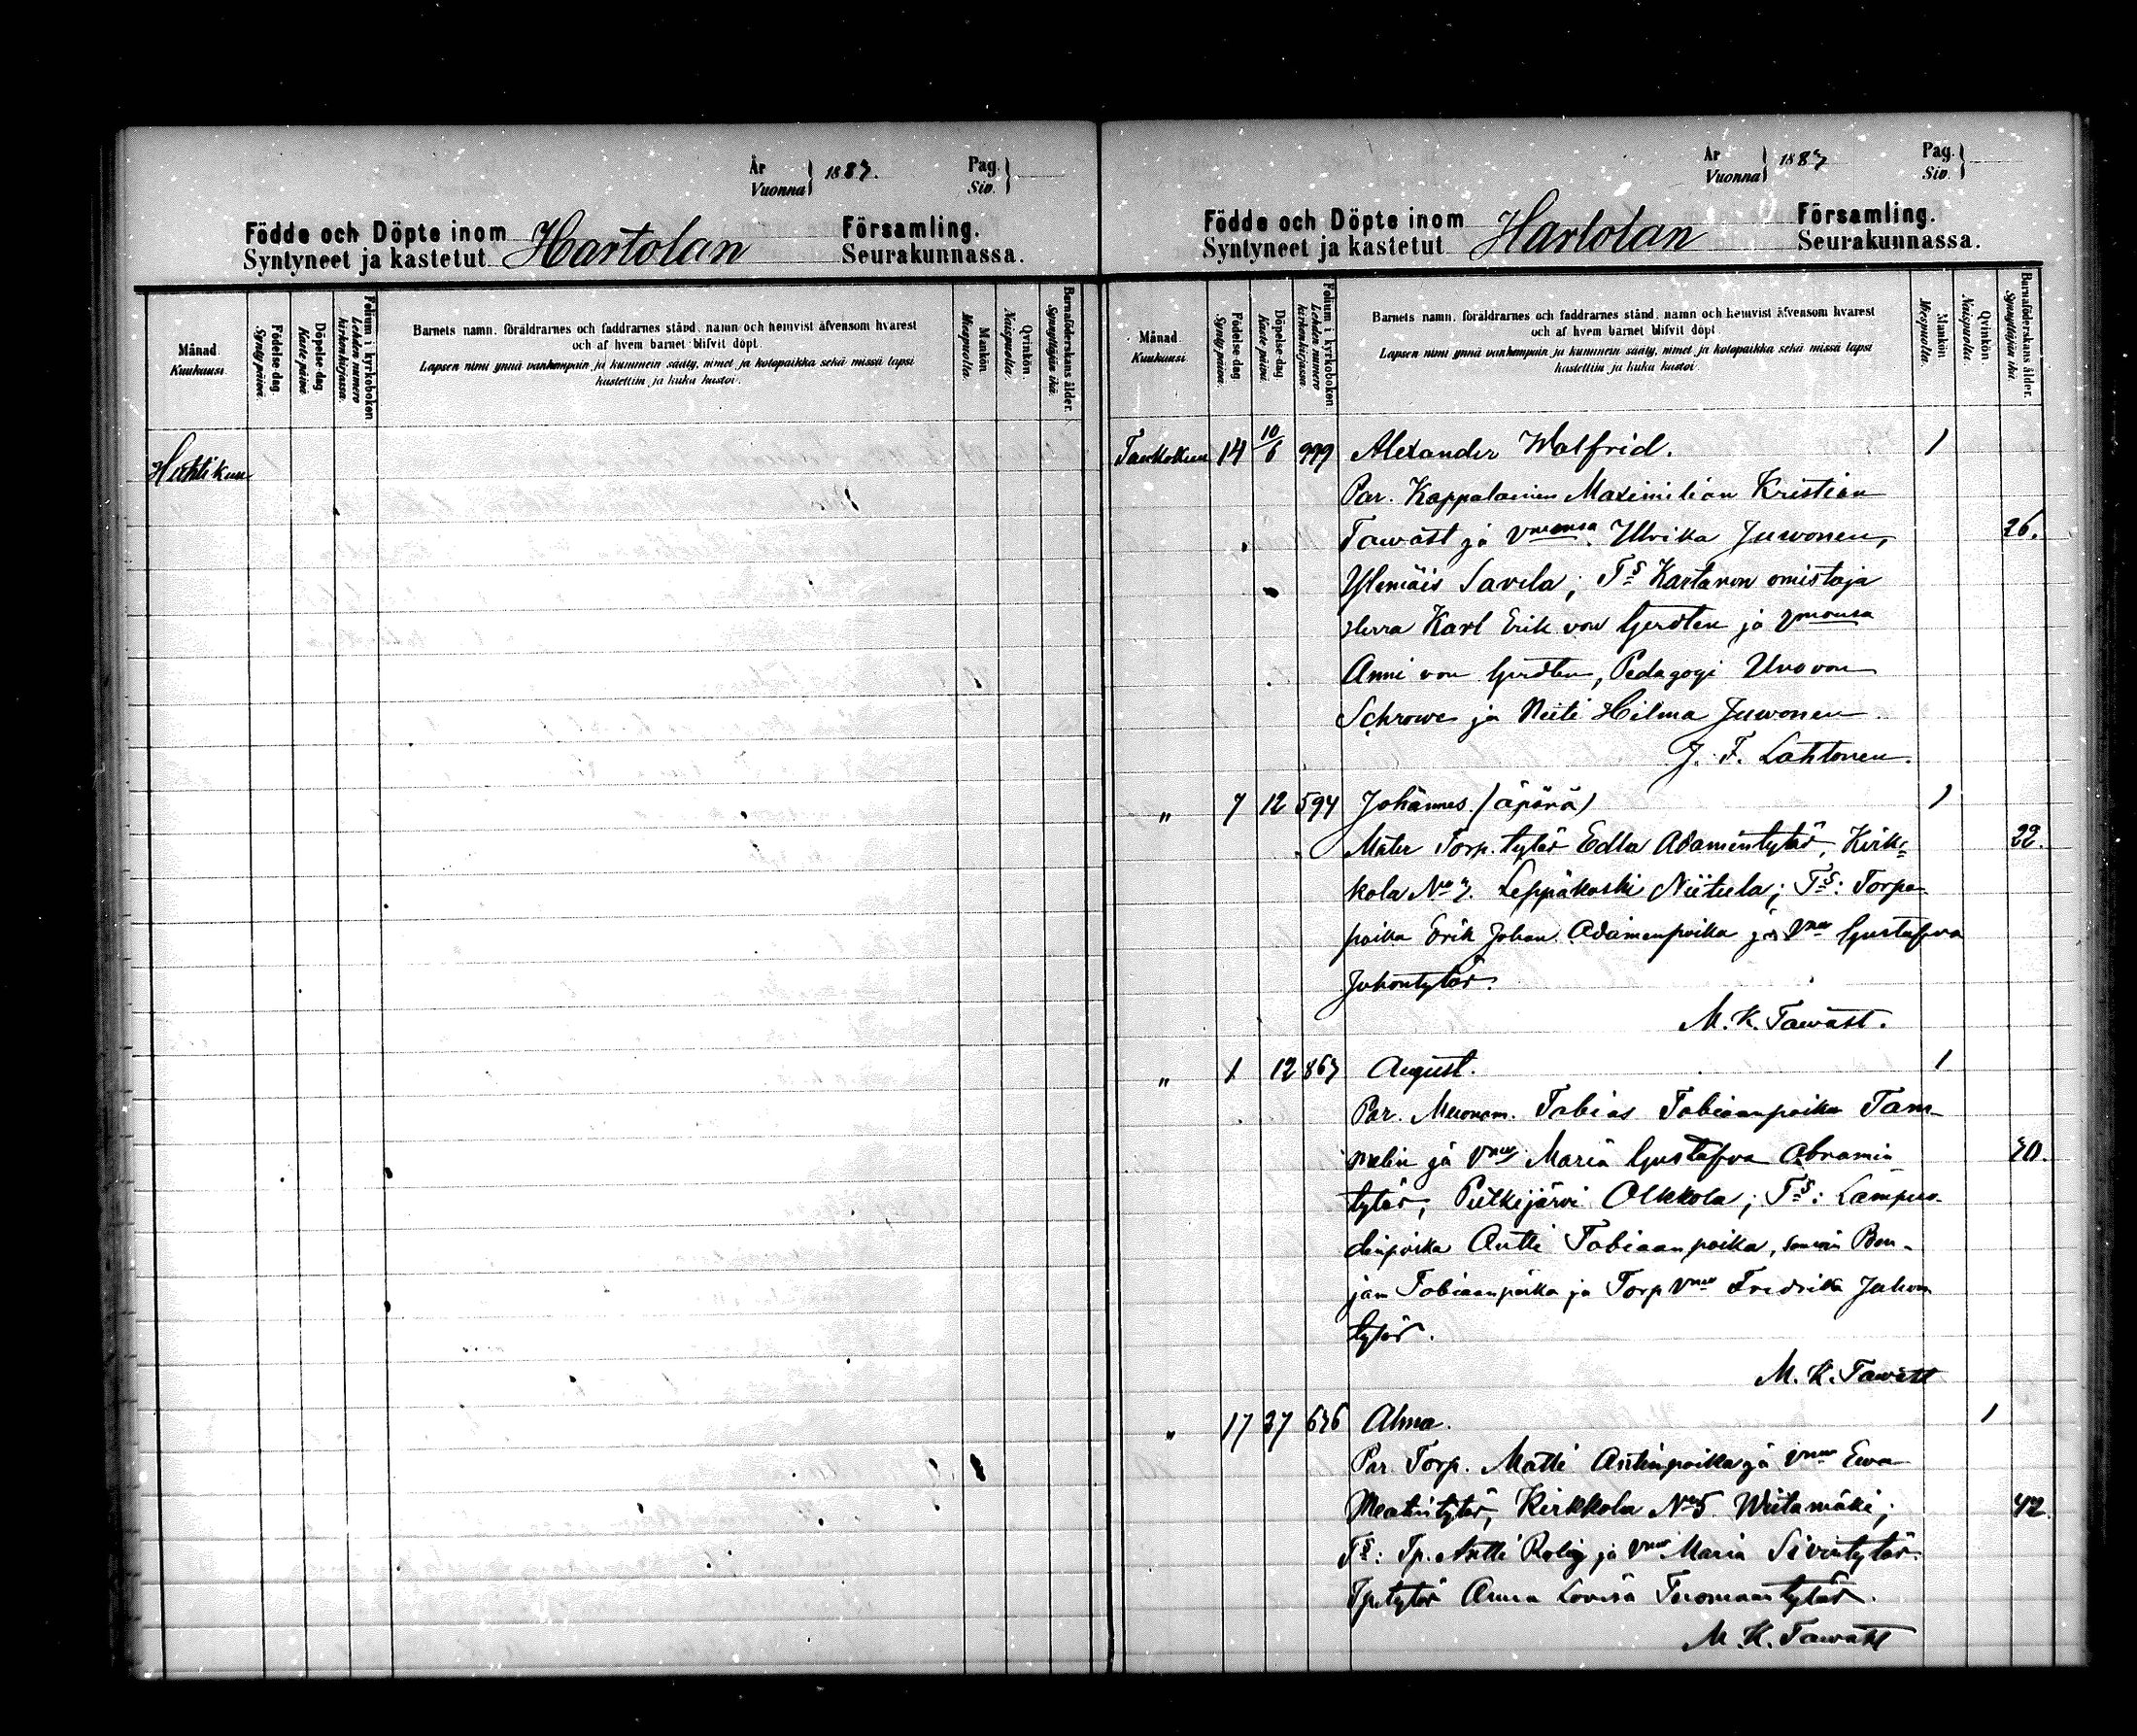 År
Vuonna } 1887. Pag.
Siv. }
Födde och Döpte inom Hartolan Församling.
Syntyneet ja kastetut Seurakunnassa.
Månad. Kuukausi.
Födelse dag. Synty päivä.
Döpelse dag. Kaste päivä.
Folium i kyrkoboken. Lehden numero kirkonkirjassa.
Barnets namn, föräldrarnes och faddrarnes stånd, namn och hemvist äfvensom hvarest
och af hvem barnet blifvit döpt.
Lapsen nimi ynnä vanhempain ja kummein sääty, nimet ja kotopaikka sekä missä lapsi
kastettiin ja kuka kastoi.
Mankön. Miespuolta.
Qvinkön. Naispuolta.
Barnaföderskans ålder. Synnyttäjän ikä.
Huhtikuu
År
Vuonna } 1887 Pag.
Siv. }
Födde och Döpte inom Hartolan Församling.
Syntyneet ja kastetut Seurakunnassa.
Månad. Kuukausi.
Födelse dag. Synty päivä.
Döpelse dag. Kaste päivä.
Folium i kyrkoboken. Lehden numero kirkonkirjassa.
Barnets namn, föräldrarnes och faddrarnes stånd, namn och hemvist äfvensom hvarest
och af hvem barnet blifvit döpt.
Lapsen nimi ynnä vanhempain ja kummein sääty, nimet ja kotopaikka sekä missä lapsi
kastettiin ja kuka kastoi.
Mankön. Miespuolta.
Qvinkön. Naispuolta.
Barnaföderskans ålder. Synnyttäjän ikä.
Toukokuu 14 10/6 999 Alexander Walfrid. 1
Par. Kappalainen Maximilian Kristian
Tawast ja Vmonsa Ulrika Juwonen, 26.
Ylemäis Savela; Ts Kartanon omistaja
Herra Karl Erik von Gerdten ja Vmonsa
Anni von Gerdten, Pedagogi Uno von
Schrowe ja Neiti Hilma Juwonen
J. F. Lahtonen.
" 7 12 594 Johannes (äpärä) 1
Mater Torp. tytär Edla Adamintytär, Kirk-
kola No 7. Leppäkoski Niitula; Ts: Torpa-
poika Erik Johan Adaminpoika ja Vmo Gustafva
Juhontytär.
M. K. Tawast.
" 1 12 867 August. 1
Par. Muonam. Tobias Tobiaanpoika Tam-
melin ja Vmo Maria Gustafva Abramin 40.
tytär, Putkijärvi Olkkola; Ts: Lampuo-
dinpoika Antti Tobiaanpoika, samoin Ben-
jam Tobiaanpoika ja Torp Vmo Fredrika Juhon
tytär.
M. K. Tawast
" 17 27 676 Alma. 1
Par. Torp. Matti Antinpoika ja Vmo Ewa
Matintytär, Kirkkola No 5 Wiitamäki; 42
Ts: Tp. Antti Rolig ja Vmo Maria Sivintytär
Tp. tytär Anna Lovisa Tuomaantytär.
M. K. Tawast